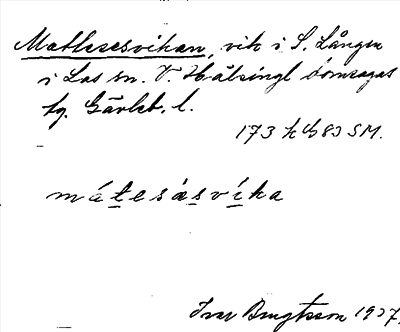 Matlesesvikan, vik i S. Lången
i Los sn. V. Hälsingl domsagas
tg. Gävleb. l.
173 h G 83 SM.
mátesàsvíka
Ivar Bengtsson 1937.